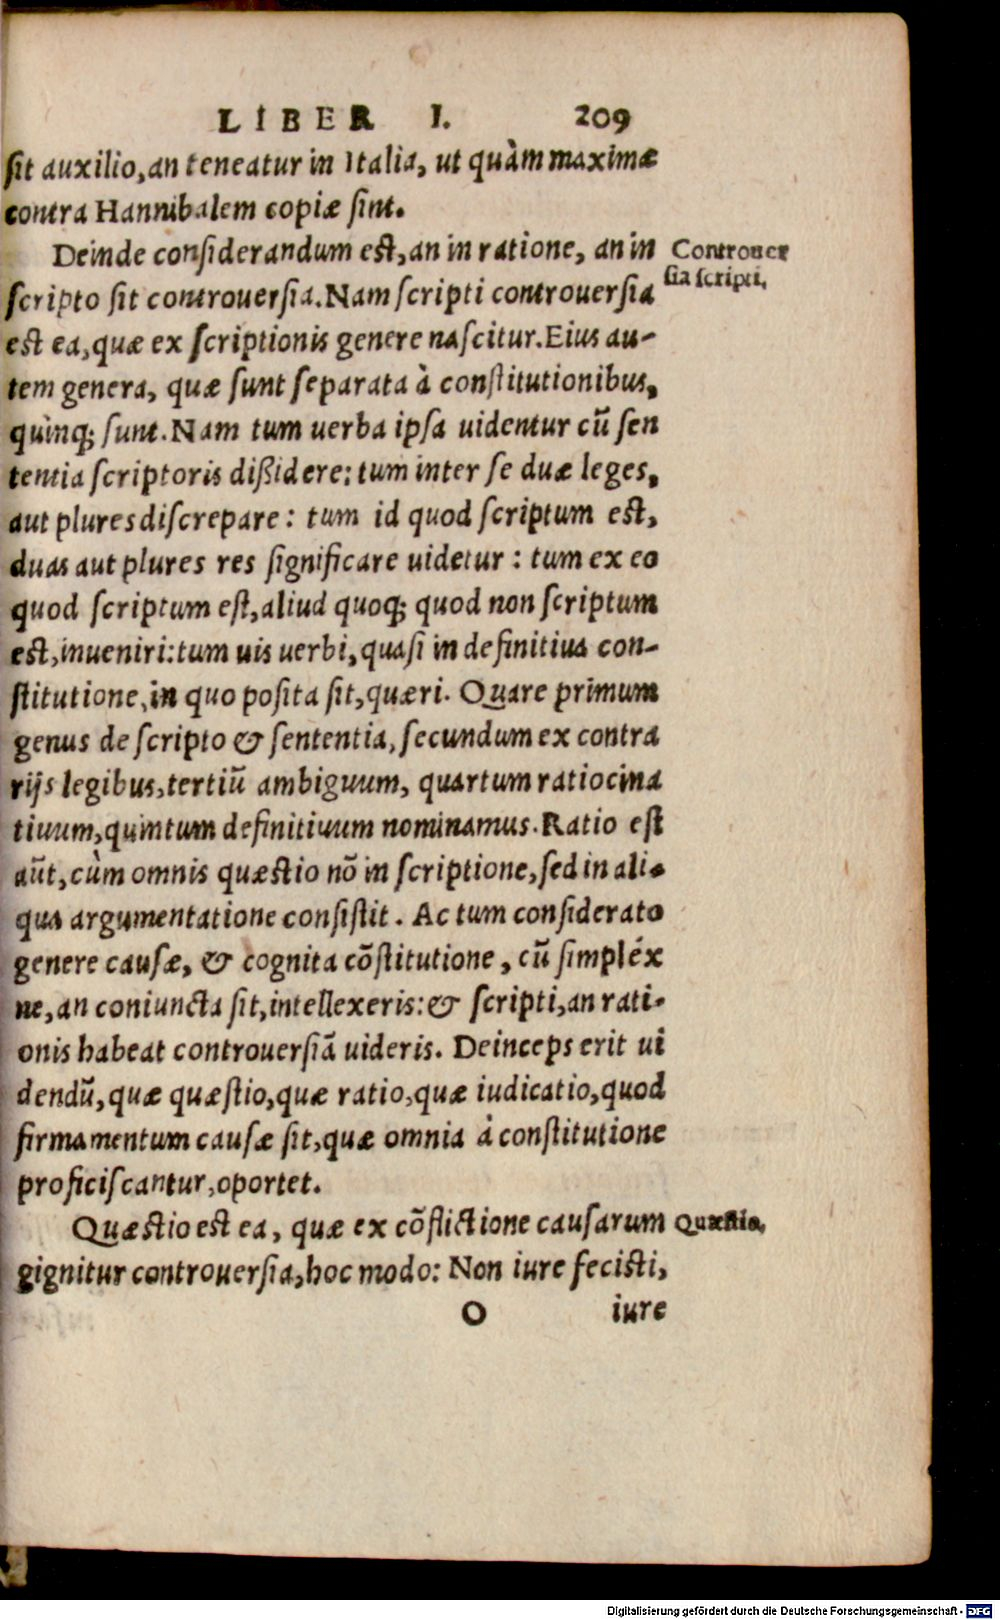 LIBER I. 209
sit auxilio, an teneatur in Italia, ut quàm maximæ
contra Hannibalem copiæ sint.
Deinde considerandum est, an in ratione, an in
Controuer
scripto sit controuersia. Nam scripti controuersia
sia scripti.
est ea, quæ ex scriptionis genere nascitur. Eius au-
tem genera, quæ sunt separata à constitutionibus,
quinq; sunt. Nam tum uerba ipsa uidentur cū sen
tentia scriptoris dißidere: tum inter se duæ leges,
aut plures discrepare: tum id quod scriptum est,
duas aut plures res significare uidetur: tum ex eo
quod scriptum est, aliud quoq; quod non scriptum
est, inueniri: tum uis uerbi, quasi in definitiua con-
stitutione, in quo posita sit, quæri. Quare primum
genus de scripto & sententia, secundum ex contra
rijs legibus, tertiū ambiguum, quartum ratiocina
tiuum, quintum definitiuum nominamus. Ratio est
aūt, cùm omnis quæstio nō in scriptione, sed in ali-
qua argumentatione consistit. Ac tum considerato
genere causæ, & cognita cōstitutione, cū simpléx
ne, an coniuncta sit, intellexeris: & scripti, an rati-
onis habeat controuersiā uideris. Deinceps erit ui
dendū, quæ quæstio, quæ ratio, quæ iudicatio, quod
firmamentum causæ sit, quæ omnia à constitutione
proficiscantur, oportet.
Quæstio est ea, quæ ex cōflictione causarum
Quæstio,
gignitur controuersia, hoc modo: Non iure fecisti,
O iure
Digitalisierung gefördert durch die Deutsche Forschungsgemeinschaft - DFG